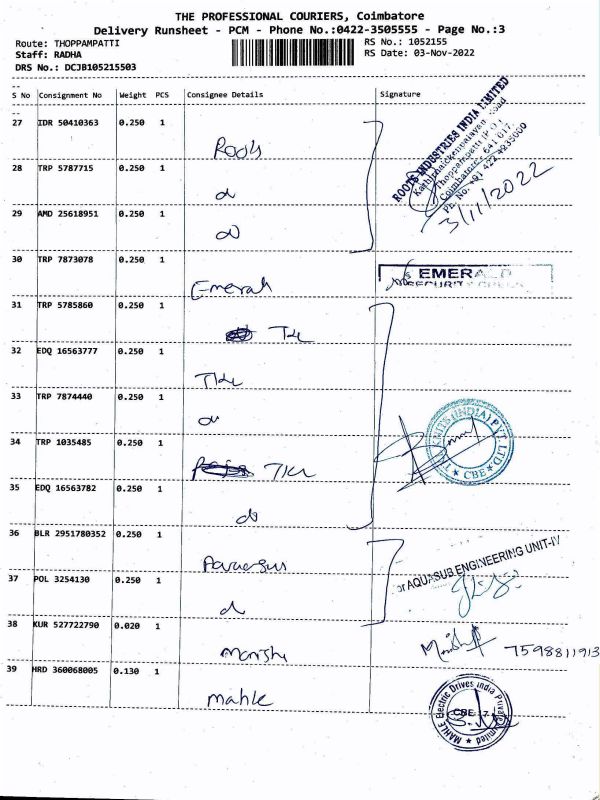 THE PROFESSIONAL COURIERS, Coimbatore
Delivery Runsheet - PCM - Phone No.:0422-3505555 - Page No.:3
Route: THOPPAMPATTI RS No.: 1052155
Staff: RADHA RS Date: 03-Nov-2022
DRS No.: DCJB105215503
S No Consignment No Weight PCS Consignee Details Signature
27 IDR 50410363 0.250 1
Roots
28 TRP 5787715 0.250 1
do
29 AMD 25618951 0.250 1
do
ROOTS INDUSTRIES INDIA LIMITED
Thoppampatti (P.O.),
Coimbatore - 641 017.
Ph. No. +91 422 4235000
3/11/2022
30 TRP 7873078 0.250 1
Emerald
EMERALD
SECURITY
31 TRP 5785860 0.250 1
32 EDQ 16563777 0.250 1
33 TRP 7874440 0.250 1
do
34 TRP 1035485 0.250 1
35 EDQ 16563782 0.250 1
do
(INDIA) PVT LTD
CBE
36 BLR 2951780352 0.250 1
37 POL 3254130 0.250 1
do
For AQUASUB ENGINEERING UNIT-IV
38 KUR 527722790 0.020 1
7598811913
39 HRD 360068005 0.130 1
Mahle
MAHLE Electric Drives India Private Limited
CBE-17